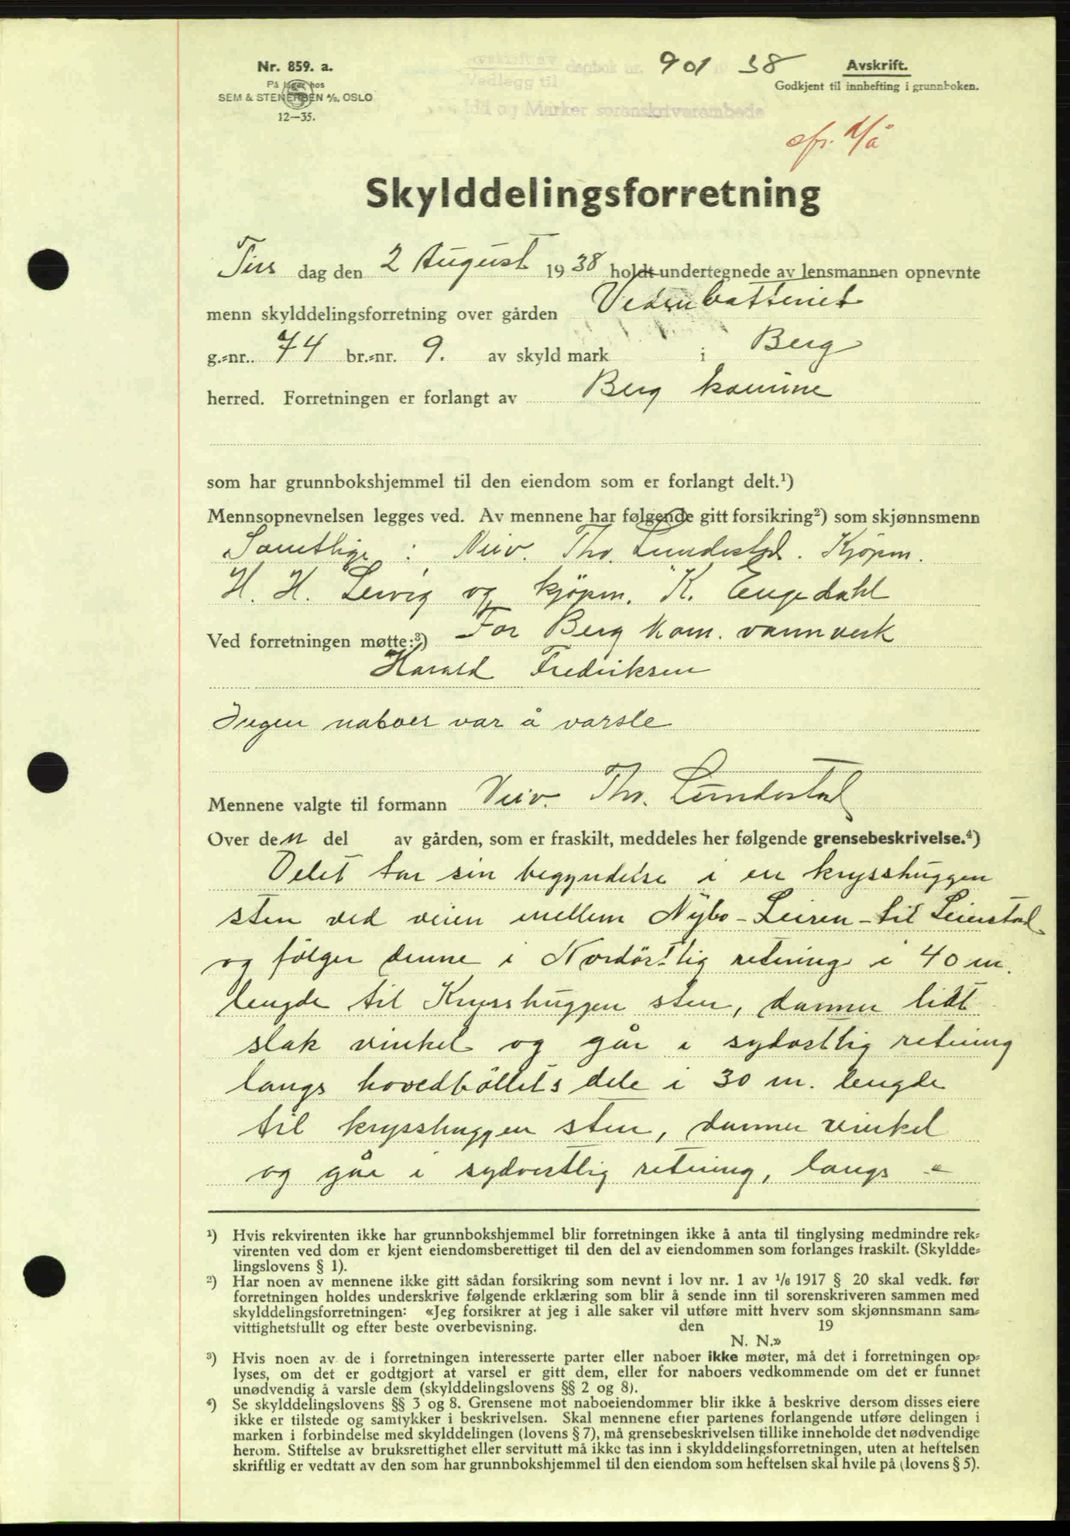 Nr. 859. a.
På lager hos
SEM & STENERSEN A/S, OSLO
12—35.
Avskrift av dagbok nr. 901 38
Vedlegg til
Idd og Marker sorenskriverembede
Avskrift.
Godkjent til innhefting i grunnboken.
Skylddelingsforretning
Tirs dag den 2 August 1938 holdt undertegnede av lensmannen opnevnte
menn skylddelingsforretning over gården
g.=nr.. 74 br.=nr. 9. av skyld mark i Berg
herred. Forretningen er forlangt av Berg komune
som har grunnbokshjemmel til den eiendom som er forlangt delt.¹)
Mennsopnevnelsen legges ved. Av mennene har følgende gitt forsikring²) som skjønnsmenn
Samtlige : Th. Lundestad. Kjöpm.
H. H. Lervig og kjöpm. K. Engedahl
Ved forretningen møtte:³) For Berg kom. vannverk
Harald Fredriksen
Ingen naboer var å varsle
Mennene valgte til formann Th. Lundestad
Over den del av gården, som er fraskilt, meddeles her følgende grensebeskrivelse.⁴)
Delet tar sin begyndelse i en krysshuggen
sten ved veien mellem Nybo - Leiren - til Leirstad
og følger denne i Nordöstlig retning i 40 m.
lengde til Krysshuggen sten, danner lidt
slak vinkel og går i sydostlig retning
langs hovedböllets dele i 30 m. lengde
til krysshuggen sten, danner vinkel
og går i sydvestlig retning, langs -
¹) Hvis rekvirenten ikke har grunnbokshjemmel blir forretningen ikke å anta til tinglysing medmindre rek=
virenten ved dom er kjent eiendomsberettiget til den del av eiendommen som forlanges fraskilt. (Skyldde=
lingslovens § 1).
²) Har noen av mennene ikke gitt sådan forsikring som nevnt i lov nr. 1 av 1/6 1917 § 20 skal vedk. før
forretningen holdes underskrive følgende erklæring som blir å sende inn til sorenskriveren sammen med
skylddelingsforretningen: «Jeg forsikrer at jeg i alle saker vil utføre mitt hverv som skjønnsmann sam=
vittighetsfullt og efter beste overbevisning. den 19
N. N.»
³) Hvis noen av de i forretningen interesserte parter eller naboer ikke møter, må det i forretningen op=
lyses, om det er godtgjort at varsel er gitt dem, eller for naboers vedkommende om det er funnet
unødvendig å varsle dem (skylddelingslovens §§ 2 og 8).
⁴) Se skylddelingslovens §§ 3 og 8. Grensene mot naboeiendommer blir ikke å beskrive dersom disses eiere
ikke er tilstede og samtykker i beskrivelsen. Skal mennene efter partenes forlangende utføre delingen i
marken i forbindelse med skylddelingen (lovens § 7), må grensebeskrivelsen tillike inneholde det nødvendige
herom. Stiftelse av bruksrettighet eller servitutt må ikke tas inn i skylddelingsforretningen, uten at heftelsen
skriftlig er vedtatt av den som har grunnbokshjemmel til den eiendom som heftelsen skal hvile på (lovens § 5).